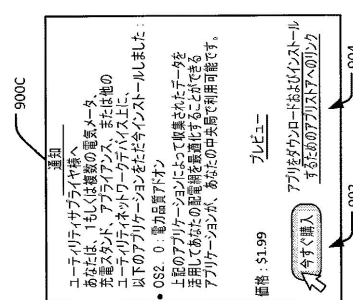 900C
通知
ユーティリティサプライヤ様へ
あなたは、1もしくは複数の電気メータ、
充電スタンド、アプライアンス、または他の
ユーティリティネットワークデバイス上に、
以下のアプリケーションをただ今インストールしました：
• OS2. 0：電力品質アドオン
上記のアプリケーションによって収集されたデータを
活用してあなたの配電網を最適化することができる
アプリケーションが、あなたの中央局で利用可能です。
価格：$1.99
プレビュー
今すぐ購入
アプリをダウンロードおよびインストール
するためのアプリストアへのリンク